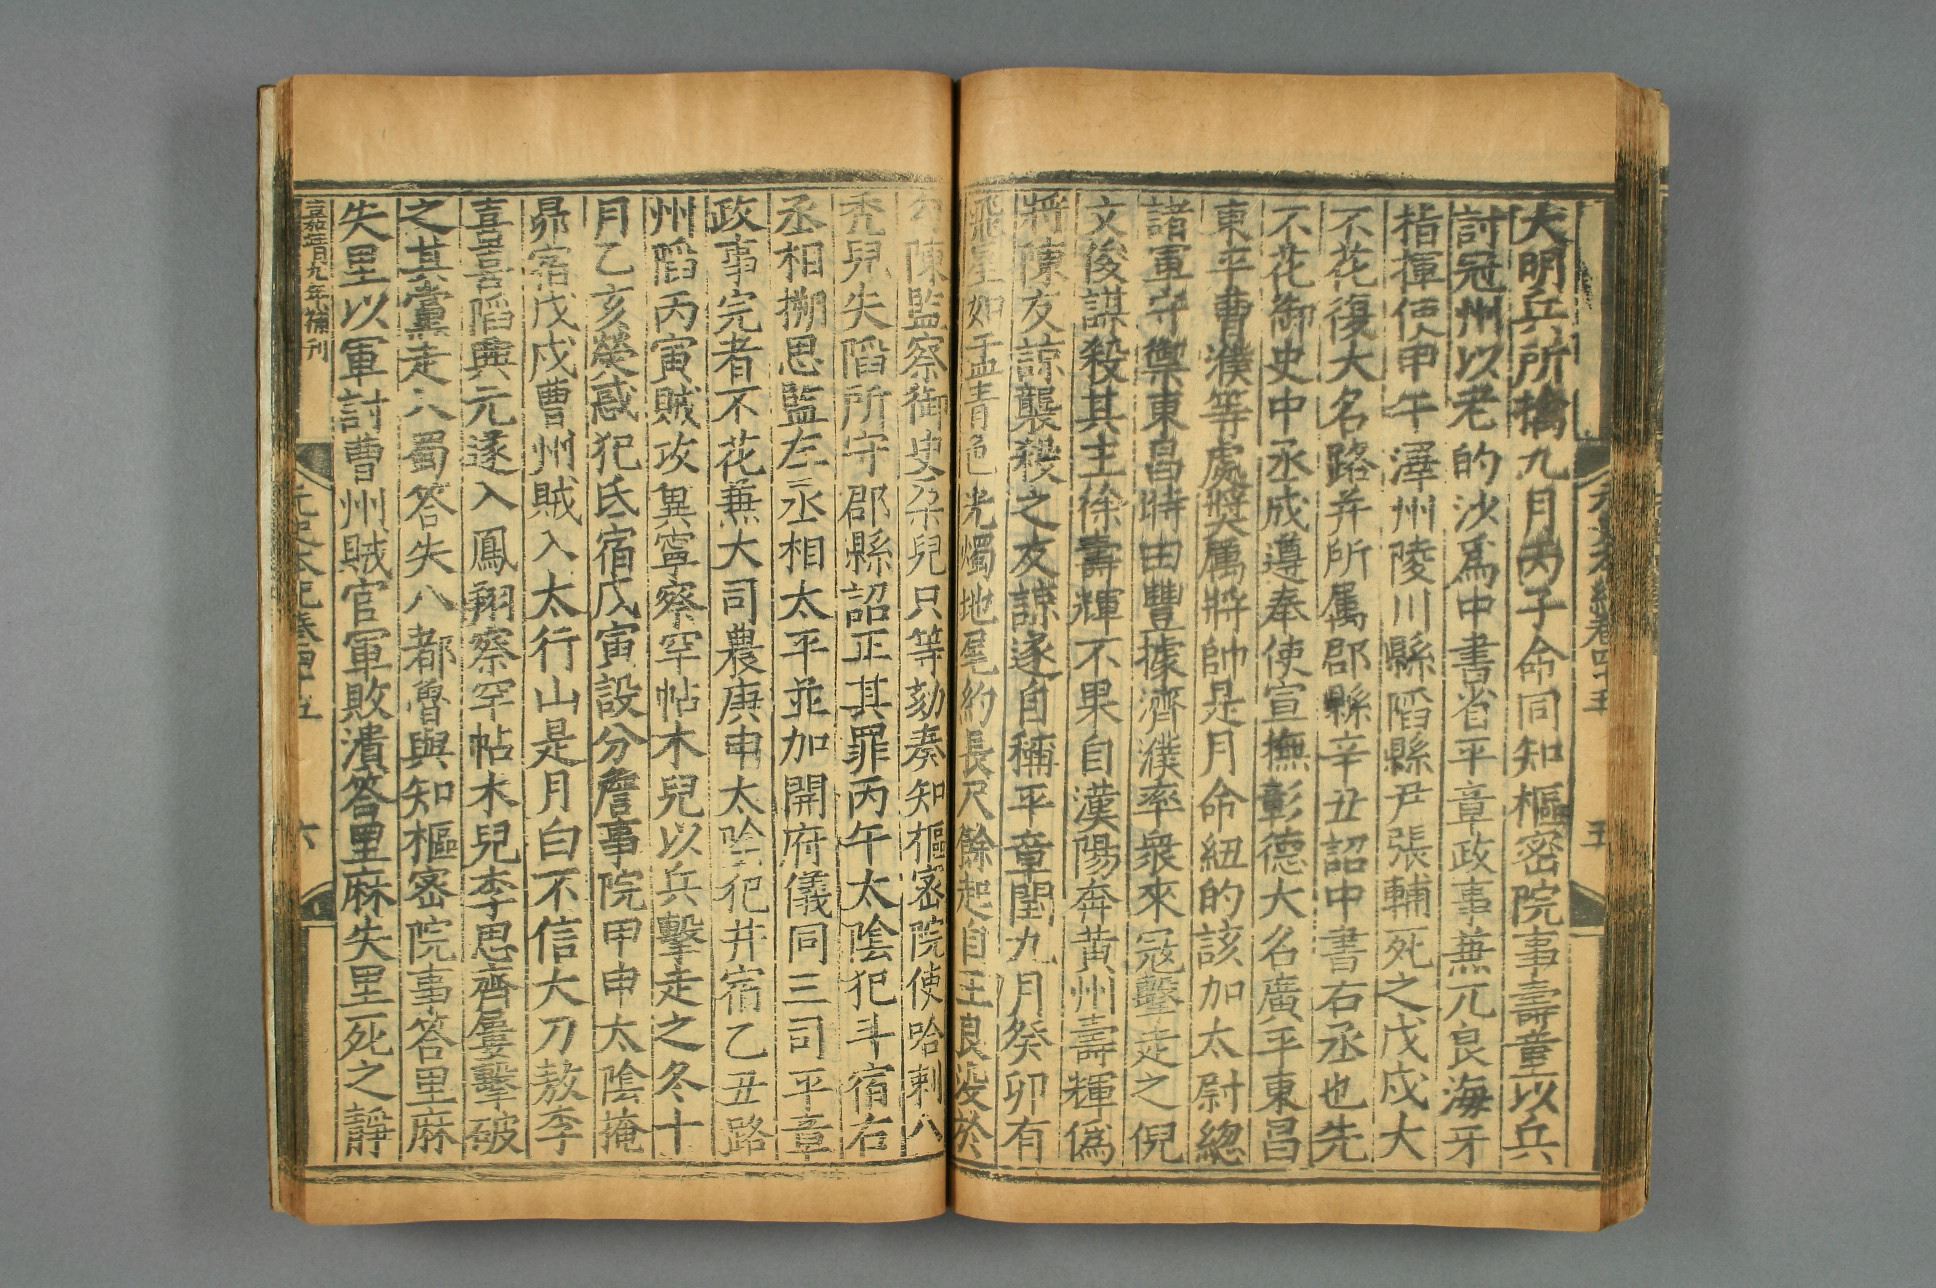 大明兵所擒九月丙子命同知樞密院事壽童以兵
討冠州以老的沙爲中書省平章政事兼兀良海牙
指揮使甲午澤州陵川縣陷縣尹張輔死之戊戌大
不花復大名路并所属郡縣辛丑詔中書右丞也先
不花御史中丞成遵奉使宣撫彰德大名廣平東昌
東平曹濮等處奬厲將帥是月命紐的該加太尉緫
諸軍守禦東昌時田豐據濟濮率衆來冦擊走之倪
文俊謀殺其主徐壽輝不果自漢陽奔黄州壽輝僞
將陳友諒襲殺之友諒遂自稱平章閏九月癸卯有
飛星如盂青色光燭地尾約長尺餘起自王良没於
勾陳監察御史朶兒只等劾奏知樞密院使哈剌八
禿兒失陷所守郡縣詔正其罪丙午太隂犯斗宿右
丞相搠思監左丞相太平並加開府儀同三司平章
政事完者不花兼大司農庚申太隂犯井宿乙丑路
州陷丙寅賊攻異寧察罕帖木兒以兵擊走之冬十
月乙亥熒惑犯氐宿戊寅設分詹事院甲申太隂掩
昴宿戊戌曹州賊入太行山是月白不信大刀敖李
喜喜陷興元遂入鳳翔察罕帖木兒李思齊屢擊破
之其黨走入蜀答失八都魯與知樞密院事答里麻
失里以軍討曹州賊官軍敗潰答里麻失里死之靜
嘉靖九年補刊
元史本紀卷四五
六
元史本紀卷四十五
五